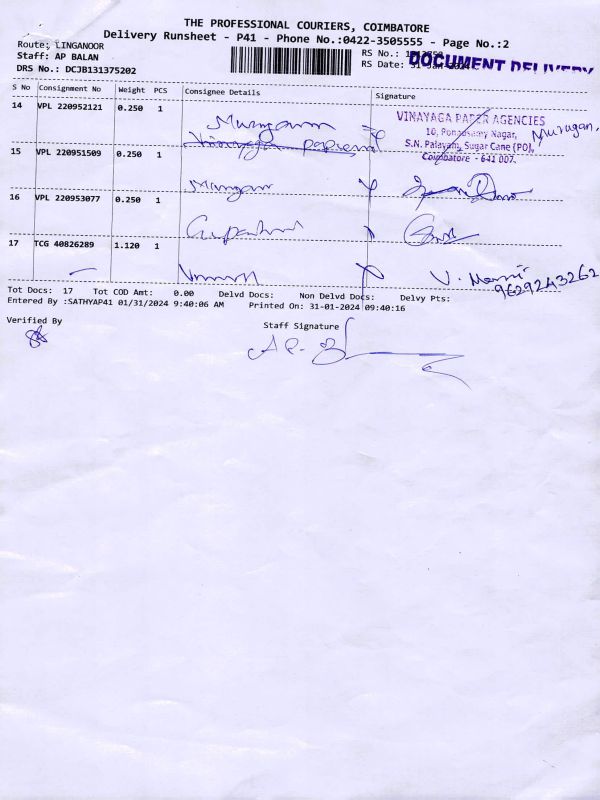 THE PROFESSIONAL COURIERS, COIMBATORE
Delivery Runsheet - P41 - Phone No.:0422-3505555 - Page No.:2
Route: LINGANOOR
RS No.:
Staff: AP BALAN
RS Date: 31-Jan-2024
DOCUMENT DELIVERY
DRS No.: DCJB131375202
S No Consignment No Weight PCS Consignee Details Signature
14 VPL 220952121 0.250 1 Murugan
VINAYAGA PAPER AGENCIES
10, Ponnusamy Nagar,
S.N. Palayam, Sugar Cane (PO),
Coimbatore - 641 007.
Murugan,
15 VPL 220951509 0.250 1
16 VPL 220953077 0.250 1
17 TCG 40826289 1.120 1
9629243262
Tot Docs: 17 Tot COD Amt: 0.00 Delvd Docs: Non Delvd Docs: Delvy Pts:
Entered By :SATHYAP41 01/31/2024 9:40:06 AM Printed On: 31-01-2024 09:40:16
Verified By
Staff Signature